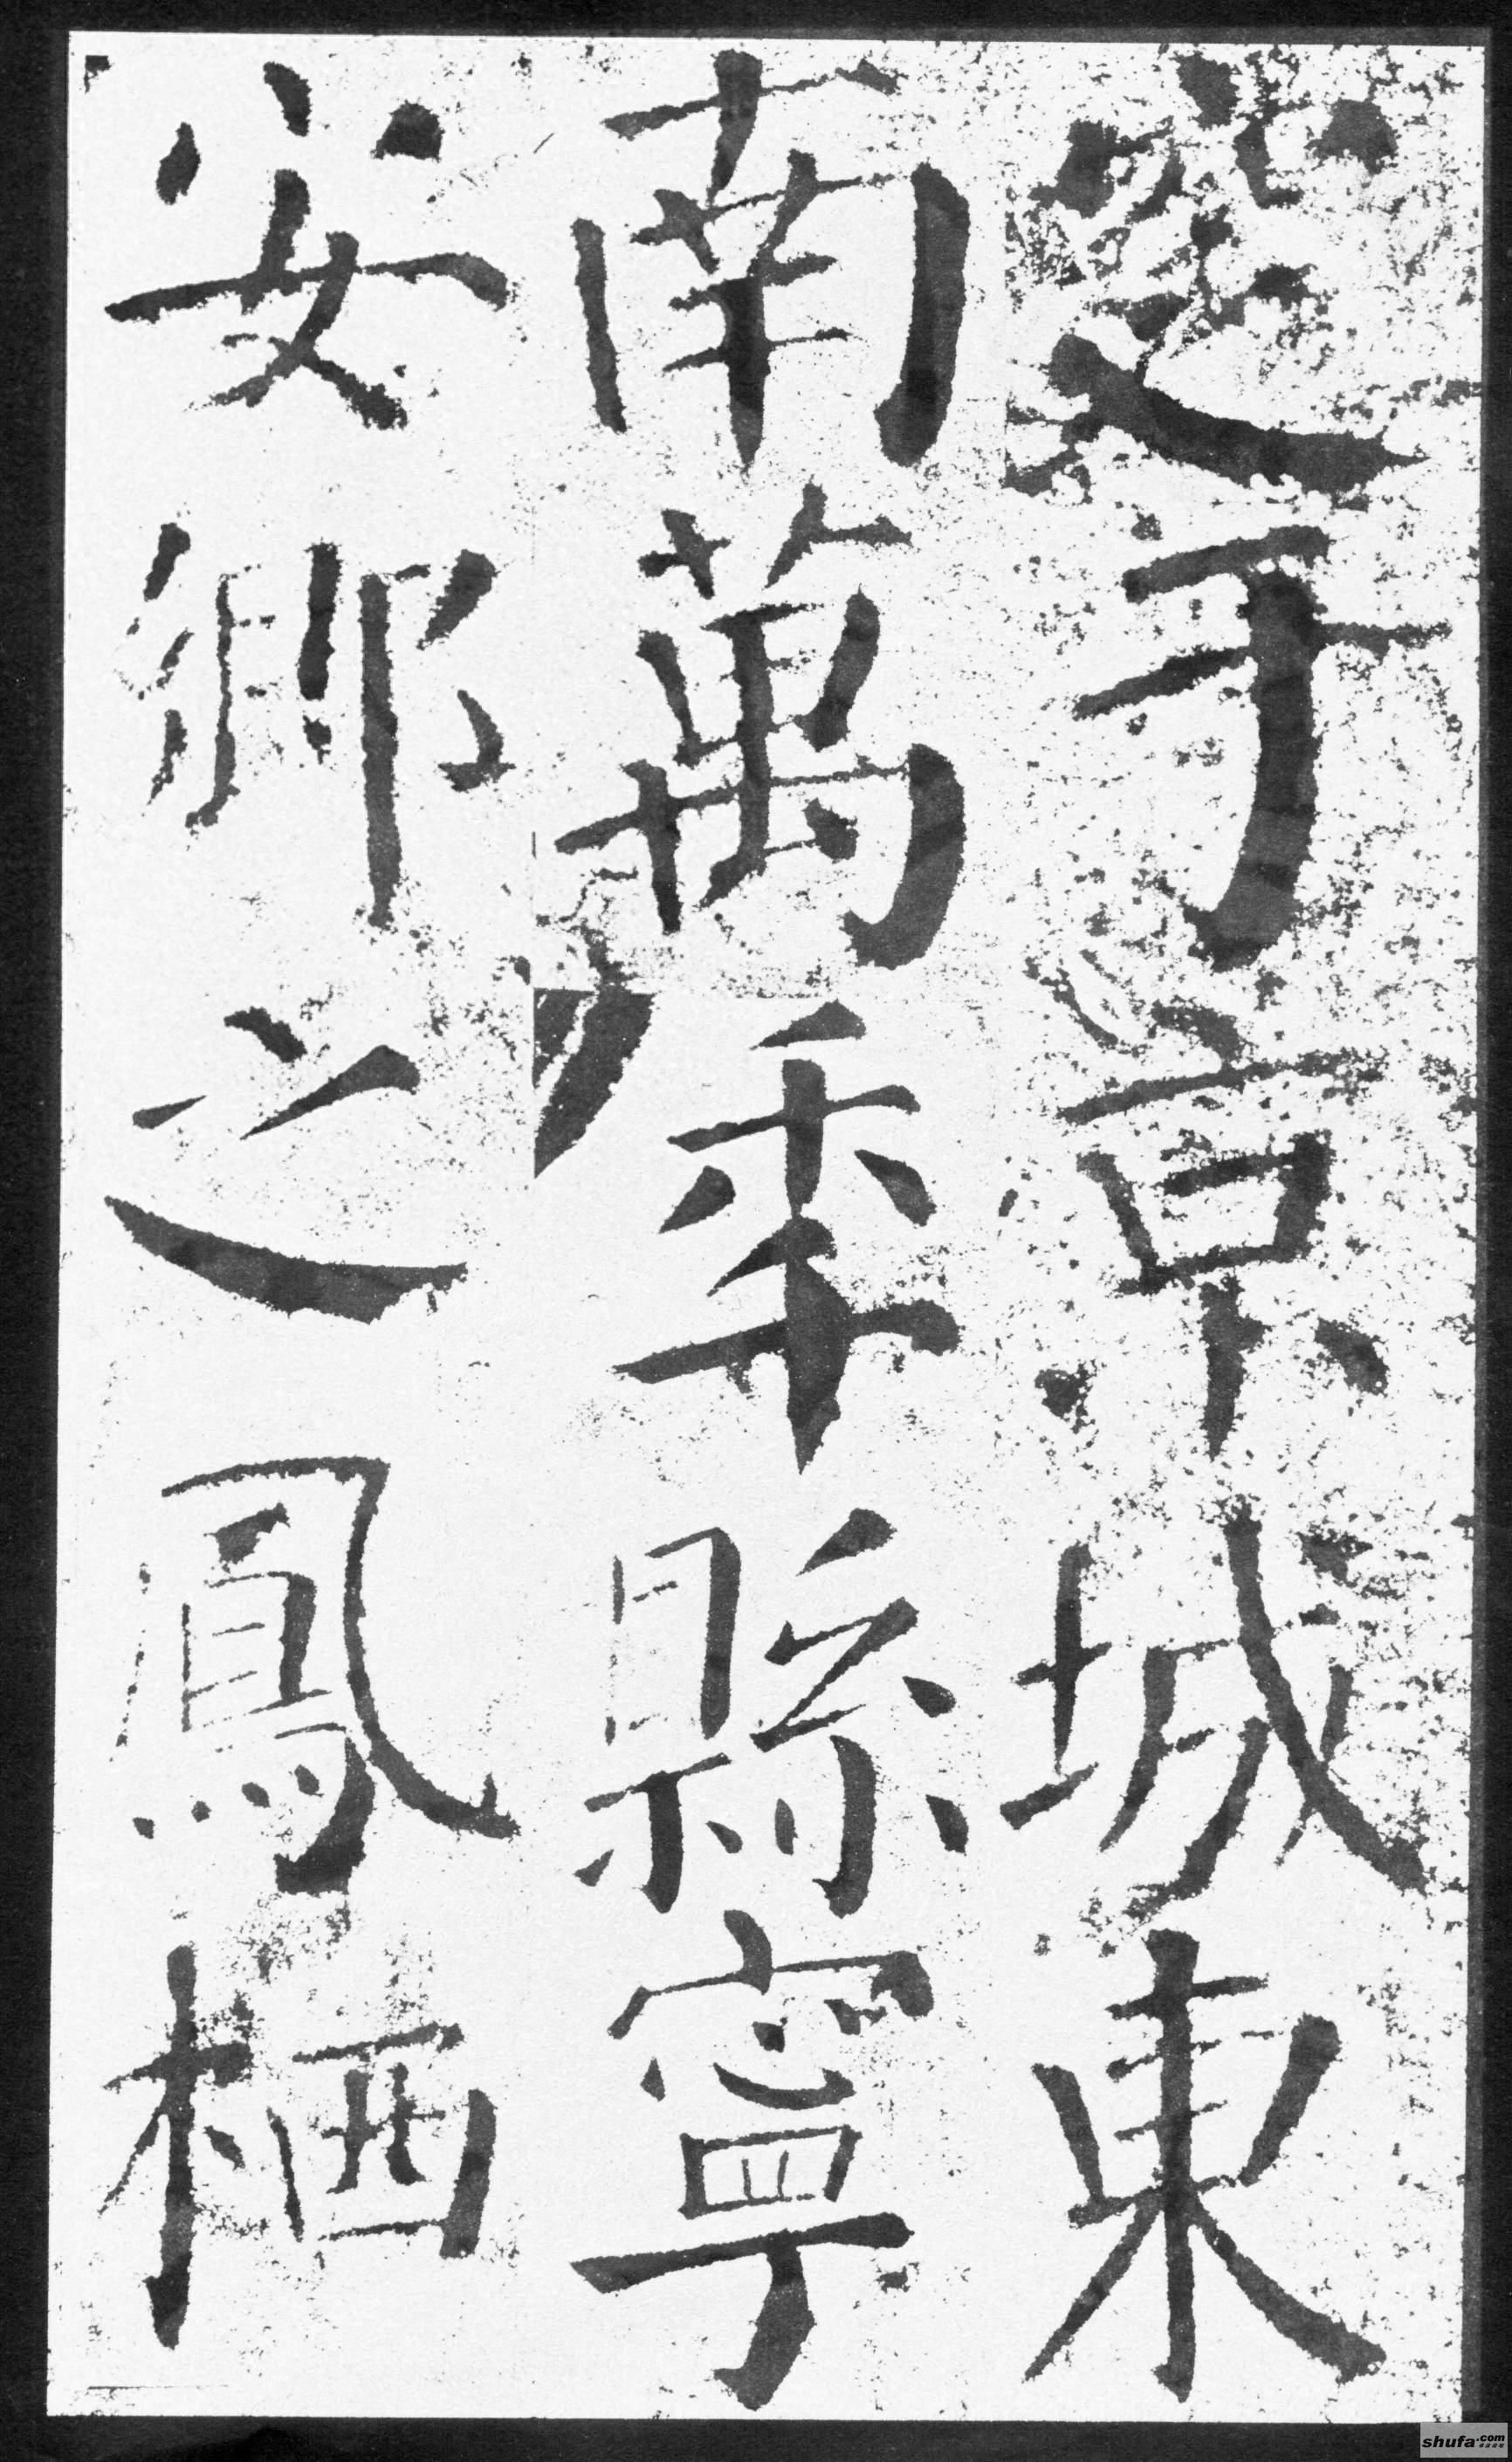 窆于京城東
南萬秊縣寧
安鄉之鳳栖
shufa.com